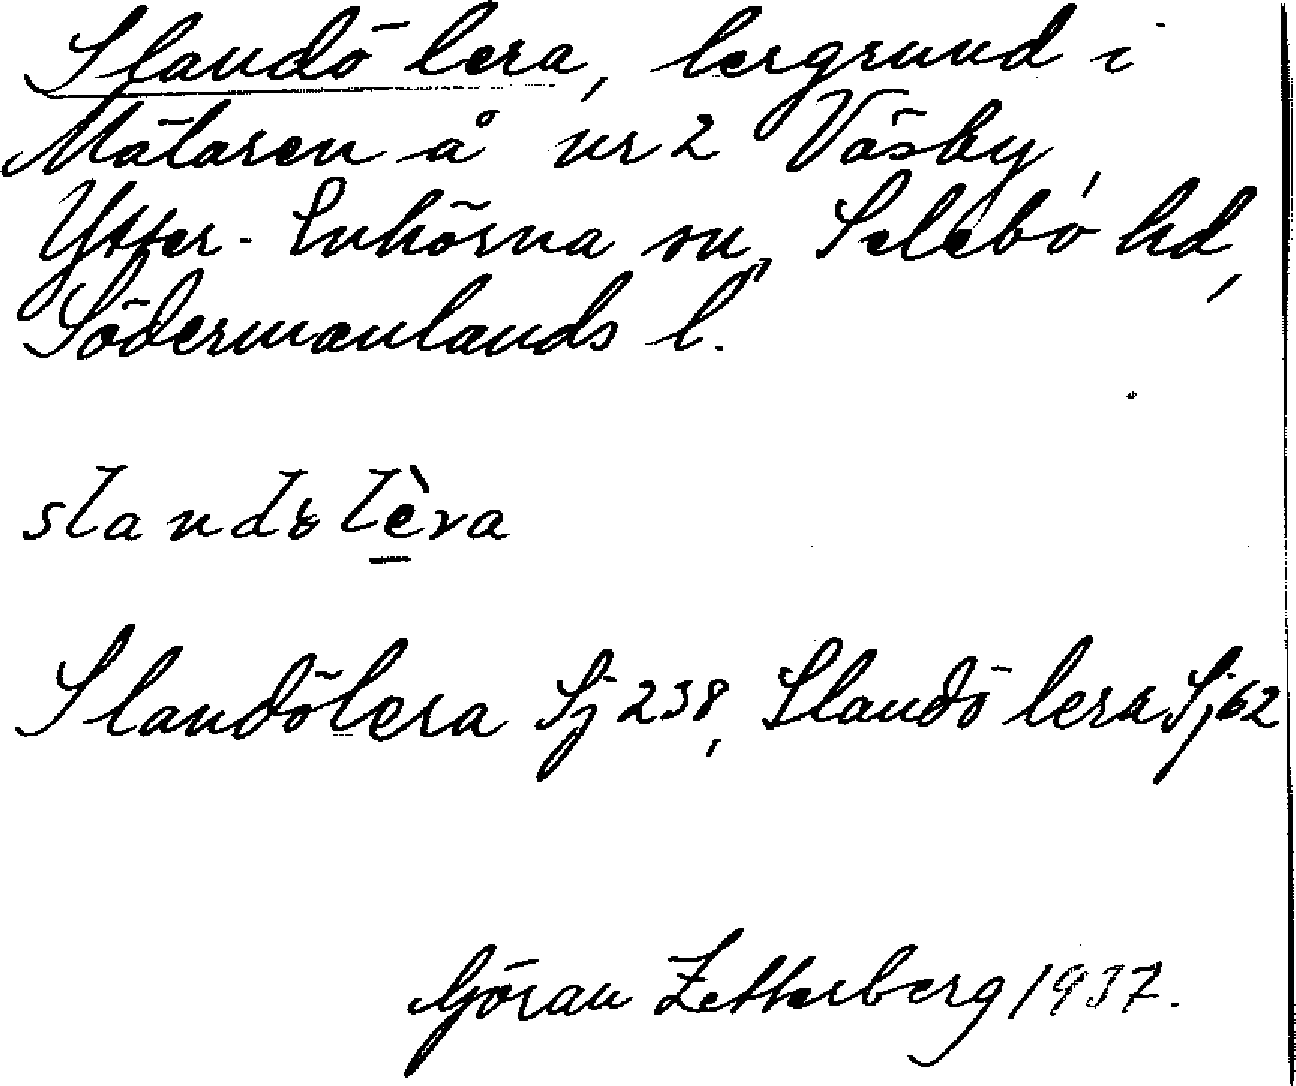 Slandö lera, lergrund i
Mälaren å nr 2 Väsby
Ytter-Enhörna sn, Selebo hd,
Södermanlands l.
Slandölera Sj 238, Slandö lera Sj 62
Göran Zetterberg 1937.